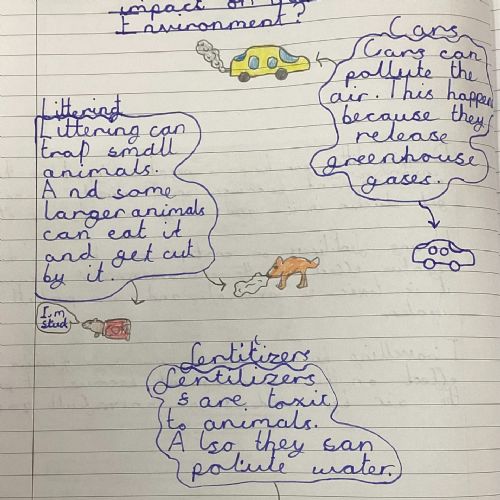 impact on the
Environment?
Cars
Cars can
pollute the
air. This happen
because they
release
greenhouse
gases.
Littering
Littering can
trap small
animals.
And some
larger animals
can eat it
and get cut
by it.
I,m
stuck
Lentitizers
Lentilizers
s are toxic
to animals.
Also they san
polute water.